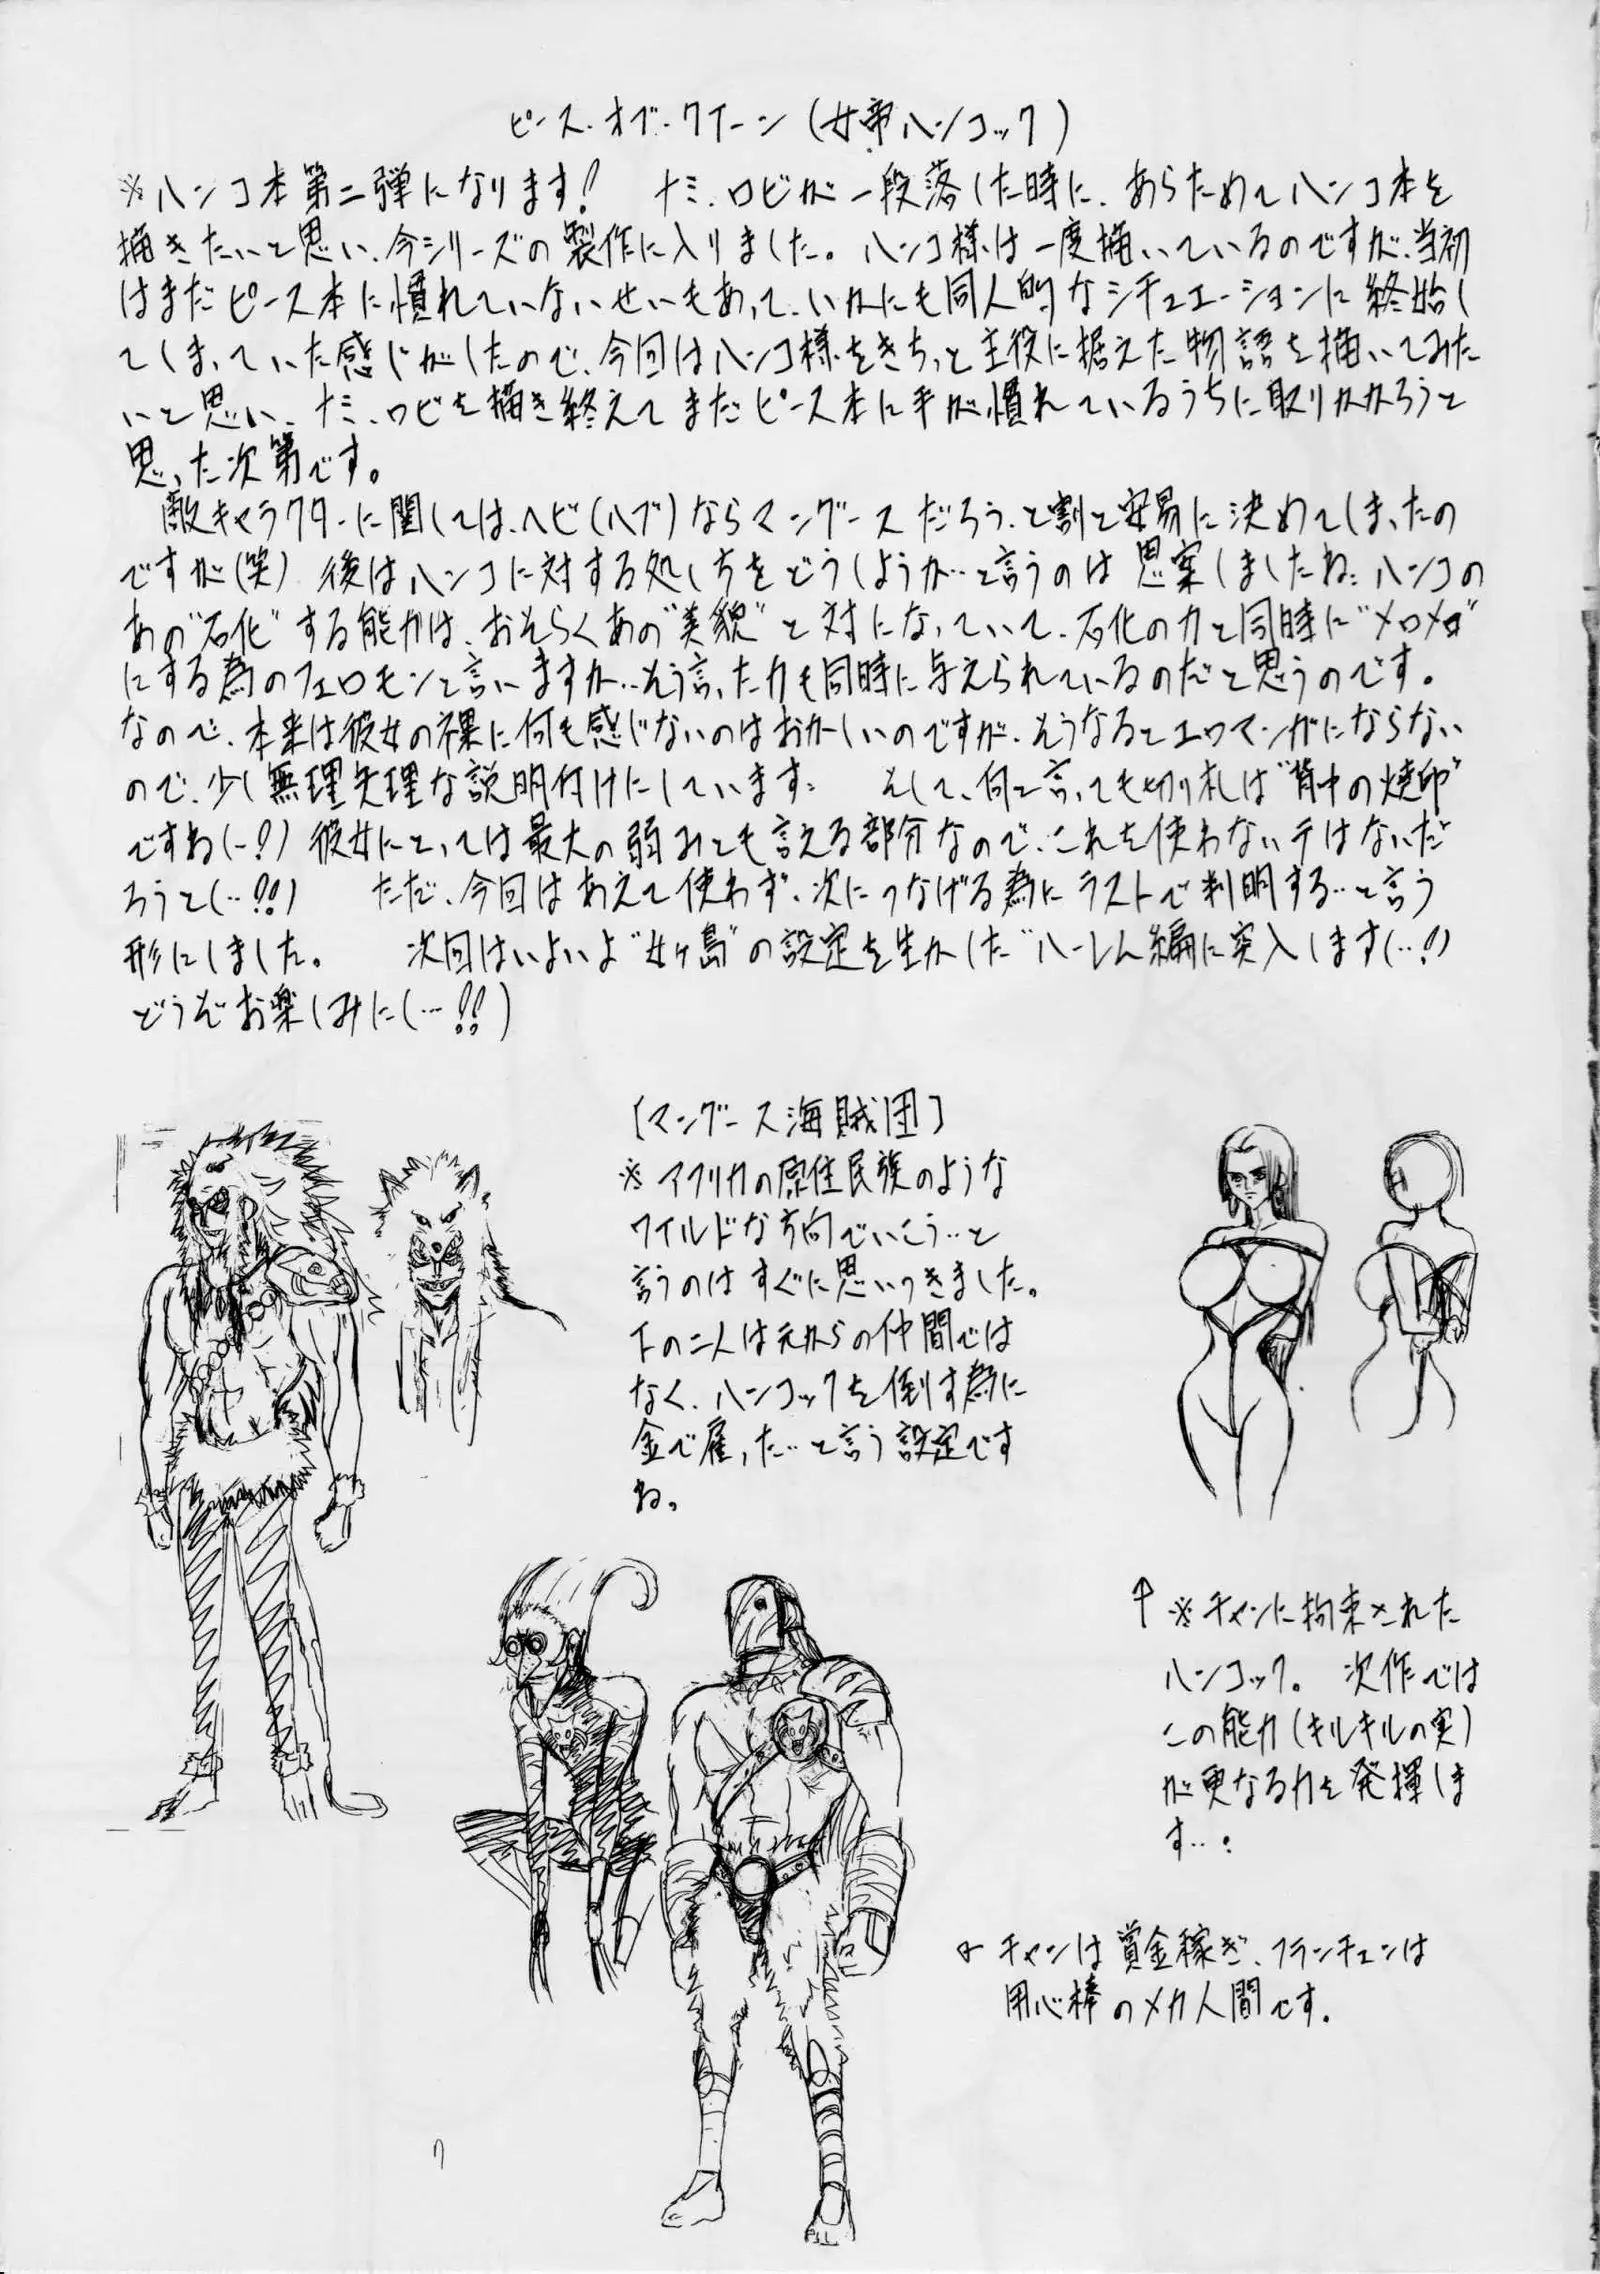 ピース・オブ・クイーン(女帝ハンコック)
※ハンコ本第二弾になります! ナミ、ロビが一段落した時に、あらためてハンコ本を
描きたいと思い、今シリーズの製作に入りました。ハンコ様は一度描いているのですが、当初
はまだピース本に慣れていないせいもあって、いかにも同人的なシチュエーションに終始し
てしまっていた感じがしたので、今回はハンコ様をきちっと主役に据えた物語を描いてみた
いと思い、ナミ、ロビを描き終えてまだピース本に手が慣れているうちに取りかかろうと
思った次第です。
敵キャラクターに関しては、ヘビ(ハブ)ならマングースだろう、と割と安易に決めてしまったの
ですが(笑) 後はハンコに対する処しちをどうしようか…と言うのは思案しましたね…ハンコの
あの"石化"する能力は、おそらくあの"美貌"と対になっていて、石化の力と同時に"メロメロ"
にする為のフェロモンと言いますか…そう言った力も同時に与えられているのだと思うのです。
なので、本来は彼女の裸に何も感じないのはおかしいのですが、そうなるとエロマンガにならない
ので、少し無理矢理な説明付けにしています… そして、何と言っても切り札は"背中の焼印"
ですね(…!) 彼女にとっては最大の弱みとも言える部分なので、これを使わないテはないだ
ろうと(…!!) ただ、今回はあえて使わず、次につなげる為にラストで判明する…と言う
形にしました。 次回はいよいよ"女ヶ島"の設定を生かした"ハーレム編に突入します(…!)
どうぞお楽しみに(…!!)
[マングース海賊団]
※アフリカの原住民族のような
ワイルドな方向でいこう…と
言うのはすぐに思いつきました。
下の二人は元からの仲間では
なく、ハンコックを倒す為に
金で雇った…と言う設定です
ね。
↑※チャンに拘束された
ハンコック。 次作では
この能力(キルキルの実)
が更なる力を発揮しま
す…!
チャンは賞金稼ぎ、フランチェンは
用心棒のメカ人間です。